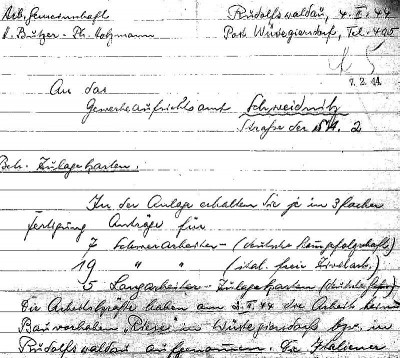 Arb. Gemeinschaft Rudolfswaldau, 4. II. 44
Butzer - Ph. Holzmann Post Wüstegiersdorf, Tel. 405
7. 2. 44
An das
Gewerbeaufsichtsamt Schweidnitz
Straße der SA. 2
Betr. Zulagekarten.
In der Anlage erhalten Sie je in 3facher
Fertigung Anträge für
7 Schwerarbeiter- (deutsche
19 " " (ital. freie Zivilarb.)
5 Langarbeiter-Zulagekarten (deutsche
Die Arbeitskräfte haben am 3. II. 44 die Arbeit beim
Bauvorhaben Riese in Wüstegiersdorf bzw. in
Rudolfswaldau aufgenommen. Die Italiener